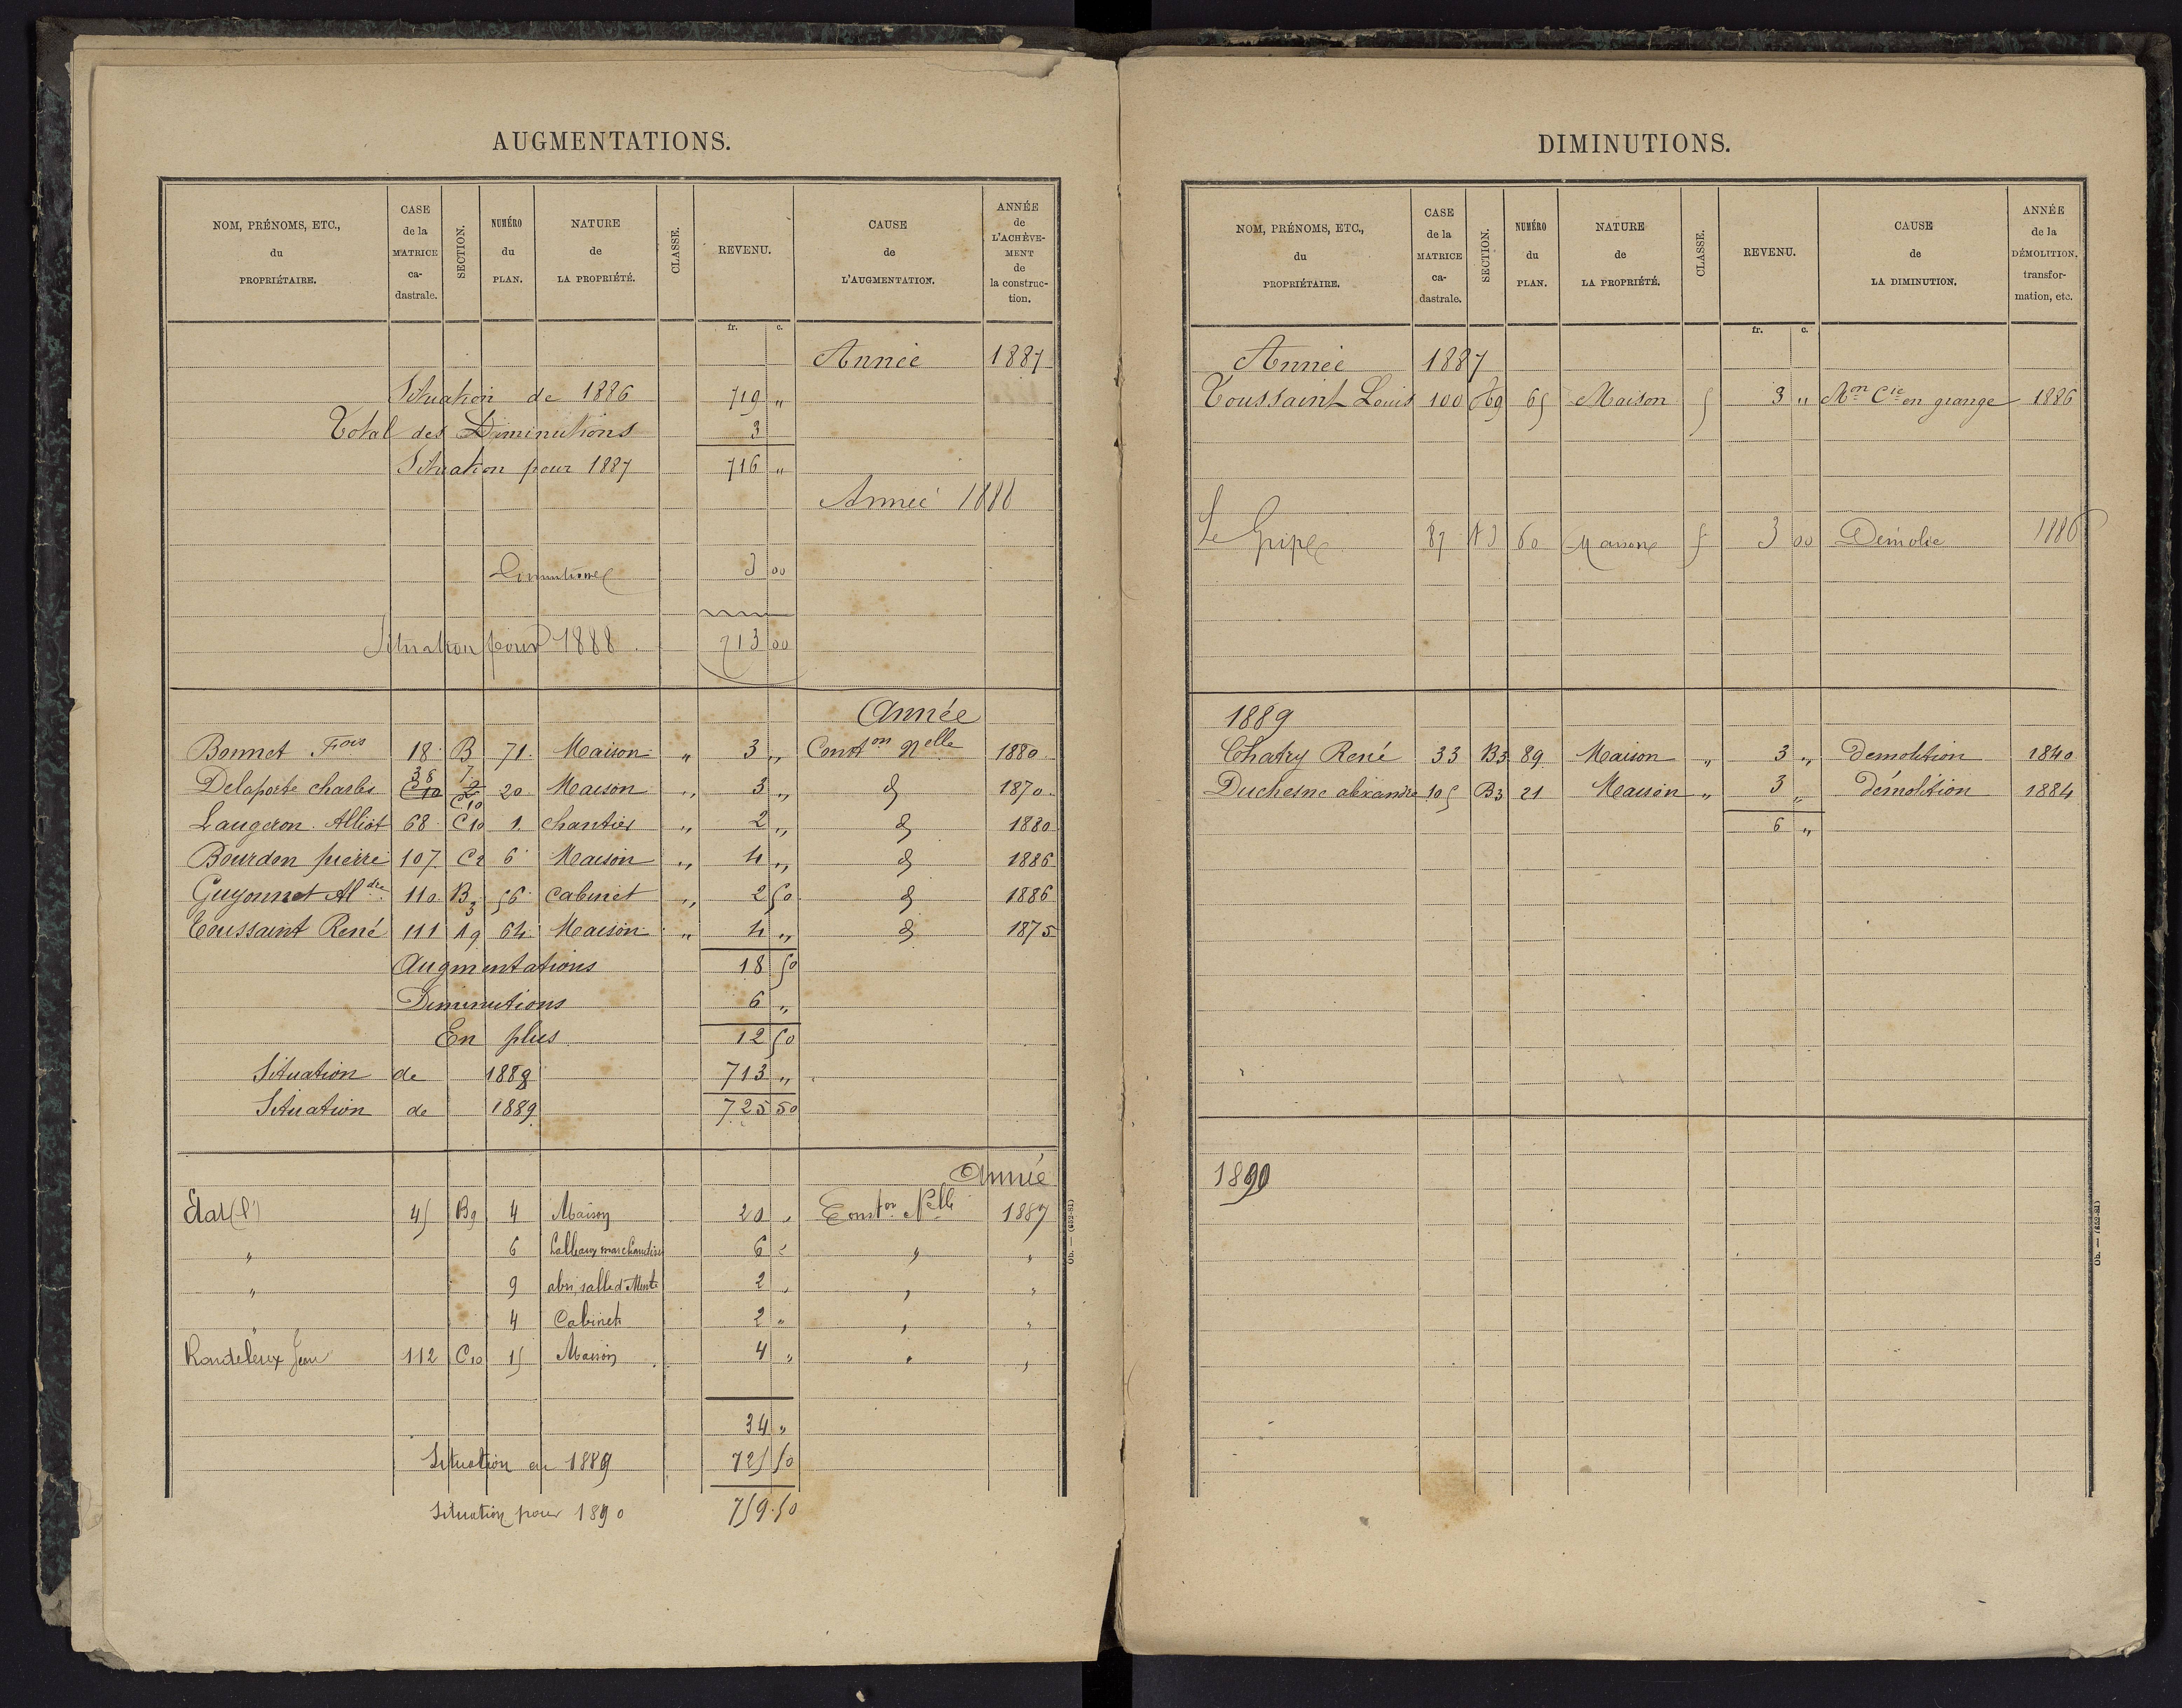 AUGMENTATIONS.
NOM, PRÉNOMS, ETC., du PROPRIÉTAIRE. CASE de la MATRICE ca-dastrale. SECTION. NUMÉRO du PLAN. NATURE de LA PROPRIÉTÉ. CLASSE. REVENU. CAUSE de L'AUGMENTATION. ANNÉE de L'ACHÈVE-MENT de la construc-tion.
fr. c.
Année 1887
Situation de 1886 719 "
Total des Diminutions 3
Situation pour 1887 716 "
Année 1888
Diminutions 3 00
Situation pour 1888 713 00
Année
Bonnet Fois 18 B 71 Maison " 3 " Conston Nelle 1880
Delaporte charles 38 20 Maison " 3 " d 1870
Laugeron Alliot 68 C10 1 chantier " 2 " d 1880
Bourdon pierre 107 C2 6 Maison " 4 " d 1886
Guyonnet Aldre 110 B3 56 Cabinet " 2 50 d 1886
Toussaint René 111 A9 64 Maison " 4 " d 1875
Augmentations 18 50
Diminutions 6 "
En plus 12 50
Situation de 1888 713 "
Situation de 1889 725 50
Année
Etat (l') 45 B9 4 Maison 20 " Conston Nelle 1887
" 6 halle aux marchandises 6 " " "
" 9 abri, salle d'Attente 2 " " "
" 4 Cabinets 2 " " "
Rondeleux Jean 112 C10 15 Maison 4 " " "
34 "
Situation en 1889 725 50
Situation pour 1890 759.50
Ob. — (652-81)
DIMINUTIONS.
NOM, PRÉNOMS, ETC., du PROPRIÉTAIRE. CASE de la MATRICE ca-dastrale. SECTION. NUMÉRO du PLAN. NATURE de LA PROPRIÉTÉ. CLASSE. REVENU. CAUSE de LA DIMINUTION. ANNÉE de la DÉMOLITION, transfor-mation, etc.
fr. c.
Année 1887
Toussaint Louis 100 A9 65 Maison 5 3 " Mon Cie en grange 1886
Le 87 A3 60 Maison 5 3 00 Démolie 1886
1889
Chatry René 33 B3 89 Maison " 3 " demolition 1840
Duchesne alexandre 105 B3 21 Maison " 3 " démolition 1884
6 "
1890
Ob. — (652-81)